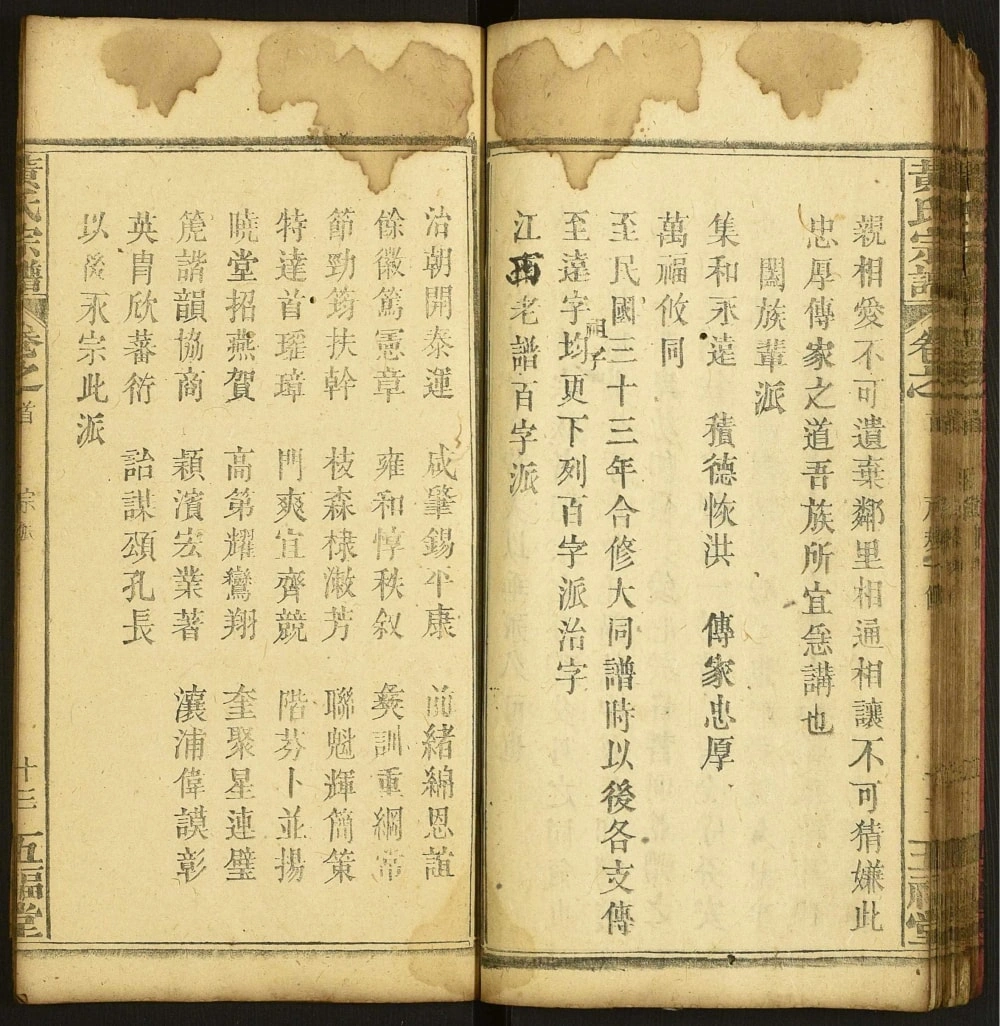 親相愛不可遺棄鄰里相通相讓不可猜嫌此
忠厚傳家之道吾族所宜急講也
闔族輩派
集和永遠 積德恢洪 傳家忠厚
萬福攸同
至民國三十三年合修大同譜時以後各支傳
至遠字均更下列百字派治字
祖字
江西老譜百字派
治朝開泰運 咸肇錫平康 前緒綿恩誼
餘徽篤憲章 雍和惇秩叙 彝訓重綱常
節勁筠扶幹 枝森棣漵芳 聯魁輝簡策
特達首瑤璋 門爽宜齊競 階芬卜並揚
曉堂招燕賀 高第耀鸞翔 奎聚星連璧
篪諧韻協商 潁濱宏業著 瀼浦偉謨彰
英胄欣蕃衍 詒謀頌孔長
以後永宗此派
黃氏宗譜 卷之首 十三 五福堂